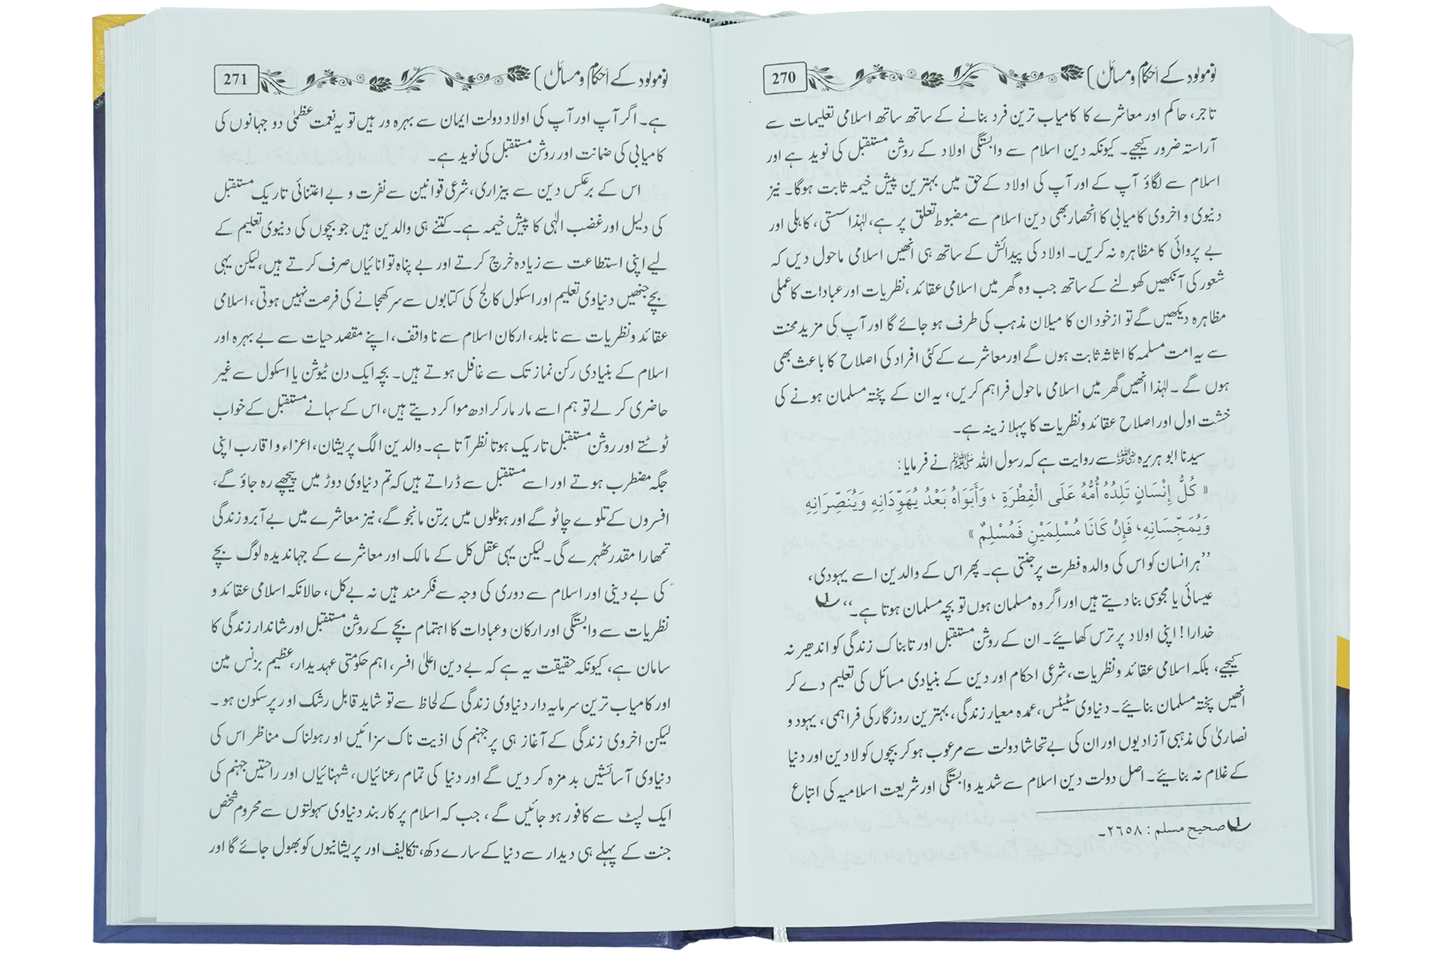 نومولود کے احکام و مسائل
270
تاجر، حاکم اور معاشرے کا کامیاب ترین فرد بنانے کے ساتھ ساتھ اسلامی تعلیمات سے
آراستہ ضرور کیجیے۔ کیونکہ دین اسلام سے وابستگی اولاد کے روشن مستقبل کی نوید ہے اور
اسلام سے لگاؤ آپ کے اور آپ کی اولاد کے حق میں بہترین پیش خیمہ ثابت ہوگا۔ نیز
دنیوی و اخروی کامیابی کا انحصار بھی دین اسلام سے مضبوط تعلق پر ہے، لہٰذا سستی، کاہلی اور
بے پروائی کا مظاہرہ نہ کریں۔ اولاد کی پیدائش کے ساتھ ہی انھیں اسلامی ماحول دیں کہ
شعور کی آنکھیں کھولنے کے ساتھ جب وہ گھر میں اسلامی عقائد، نظریات اور عبادات کا عملی
مظاہرہ دیکھیں گے تو ازخود ان کا میلان مذہب کی طرف ہو جائے گا اور آپ کی مزید محنت
سے یہ امت مسلمہ کا اثاثہ ثابت ہوں گے اور معاشرے کے کئی افراد کی اصلاح کا باعث بھی
ہوں گے۔ لہٰذا انھیں گھر میں اسلامی ماحول فراہم کریں، یہ ان کے پختہ مسلمان ہونے کی
خشت اول اور اصلاح عقائد و نظریات کا پہلا زینہ ہے۔
سیدنا ابو ہریرہ رضی اللہ عنہ سے روایت ہے کہ رسول اللہ ﷺ نے فرمایا:
« كُلُّ إِنْسَانٍ تَلِدُهُ أُمُّهُ عَلَى الْفِطْرَةِ ، وَأَبَوَاهُ بَعْدُ يُهَوِّدَانِهِ وَيُنَصِّرَانِهِ
وَيُمَجِّسَانِهِ، فَإِنْ كَانَا مُسْلِمَيْنِ فَمُسْلِمٌ »
’’ہر انسان کو اس کی والدہ فطرت پر جنتی ہے۔ پھر اس کے والدین اسے یہودی،
عیسائی یا مجوسی بنا دیتے ہیں اور اگر وہ مسلمان ہوں تو بچہ مسلمان ہوتا ہے۔‘‘ ①
خدارا! اپنی اولاد پر ترس کھائیے۔ ان کے روشن مستقبل اور تابناک زندگی کو اندھیر نہ
کیجیے، بلکہ اسلامی عقائد و نظریات، شرعی احکام اور دین کے بنیادی مسائل کی تعلیم دے کر
انھیں پختہ مسلمان بنائیے۔ دنیاوی سٹیٹس، عمدہ معیار زندگی، بہترین روزگار کی فراہمی، یہود و
نصاریٰ کی مذہبی آزادیوں اور ان کی بے تحاشا دولت سے مرعوب ہو کر بچوں کو لادین اور دنیا
کے غلام نہ بنائیے۔ اصل دولت دین اسلام سے شدید وابستگی اور شریعت اسلامیہ کی اتباع
① صحیح مسلم : ۲۶۵۸۔
نومولود کے احکام و مسائل
271
ہے۔ اگر آپ اور آپ کی اولاد دولت ایمان سے بہرہ ور ہیں تو یہ نعمت عظمیٰ دو جہانوں کی
کامیابی کی ضمانت اور روشن مستقبل کی نوید ہے۔
اس کے برعکس دین سے بیزاری، شرعی قوانین سے نفرت و بے اعتنائی تاریک مستقبل
کی دلیل اور غضب الٰہی کا پیش خیمہ ہے۔ کتنے ہی والدین ہیں جو بچوں کی دنیوی تعلیم کے
لیے اپنی استطاعت سے زیادہ خرچ کرتے اور بے پناہ توانائیاں صرف کرتے ہیں، لیکن یہی
بچے جنھیں دنیاوی تعلیم اور اسکول کالج کی کتابوں سے سر کھجانے کی فرصت نہیں ہوتی، اسلامی
عقائد و نظریات سے نابلد، ارکان اسلام سے ناواقف، اپنے مقصد حیات سے بے بہرہ اور
اسلام کے بنیادی رکن نماز تک سے غافل ہوتے ہیں۔ بچہ ایک دن ٹیوشن یا اسکول سے غیر
حاضری کر لے تو ہم اسے مار مار کر ادھ موا کر دیتے ہیں، اس کے سہانے مستقبل کے خواب
ٹوٹتے اور روشن مستقبل تاریک ہوتا نظر آتا ہے۔ والدین الگ پریشان، اعزاء و اقارب اپنی
جگہ مضطرب ہوتے اور اسے مستقبل سے ڈراتے ہیں کہ تم دنیاوی دوڑ میں پیچھے رہ جاؤ گے،
افسروں کے تلوے چاٹو گے اور ہوٹلوں میں برتن مانجو گے، نیز معاشرے میں بے آبرو زندگی
تمھارا مقدر ٹھہرے گی۔ لیکن یہی عقل کل کے مالک اور معاشرے کے جہاندیدہ لوگ بچے
کی بے دینی اور اسلام سے دوری کی وجہ سے فکر مند ہیں نہ بے کل، حالانکہ اسلامی عقائد و
نظریات سے وابستگی اور ارکان و عبادات کا اہتمام بچے کے روشن مستقبل اور شاندار زندگی کا
سامان ہے، کیونکہ حقیقت یہ ہے کہ بے دین اعلیٰ افسر، اہم حکومتی عہدیدار، عظیم بزنس مین
اور کامیاب ترین سرمایہ دار دنیاوی زندگی کے لحاظ سے تو شاید قابل رشک اور پرسکون ہو۔
لیکن اخروی زندگی کے آغاز ہی پر جہنم کی اذیت ناک سزائیں اور ہولناک مناظر اس کی
دنیاوی آسائشیں بدمزہ کر دیں گے اور دنیا کی تمام رعنائیاں، شہنائیاں اور راحتیں جہنم کی
ایک لپٹ سے کافور ہو جائیں گے، جب کہ اسلام پر کاربند دنیاوی سہولتوں سے محروم شخص
جنت کے پہلے ہی دیدار سے دنیا کے سارے دکھ، تکالیف اور پریشانیوں کو بھول جائے گا اور